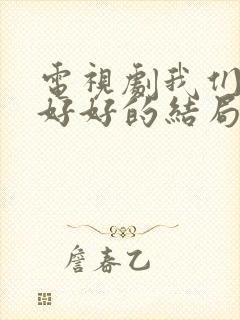 電視劇我们
好好的結局
詹春乙